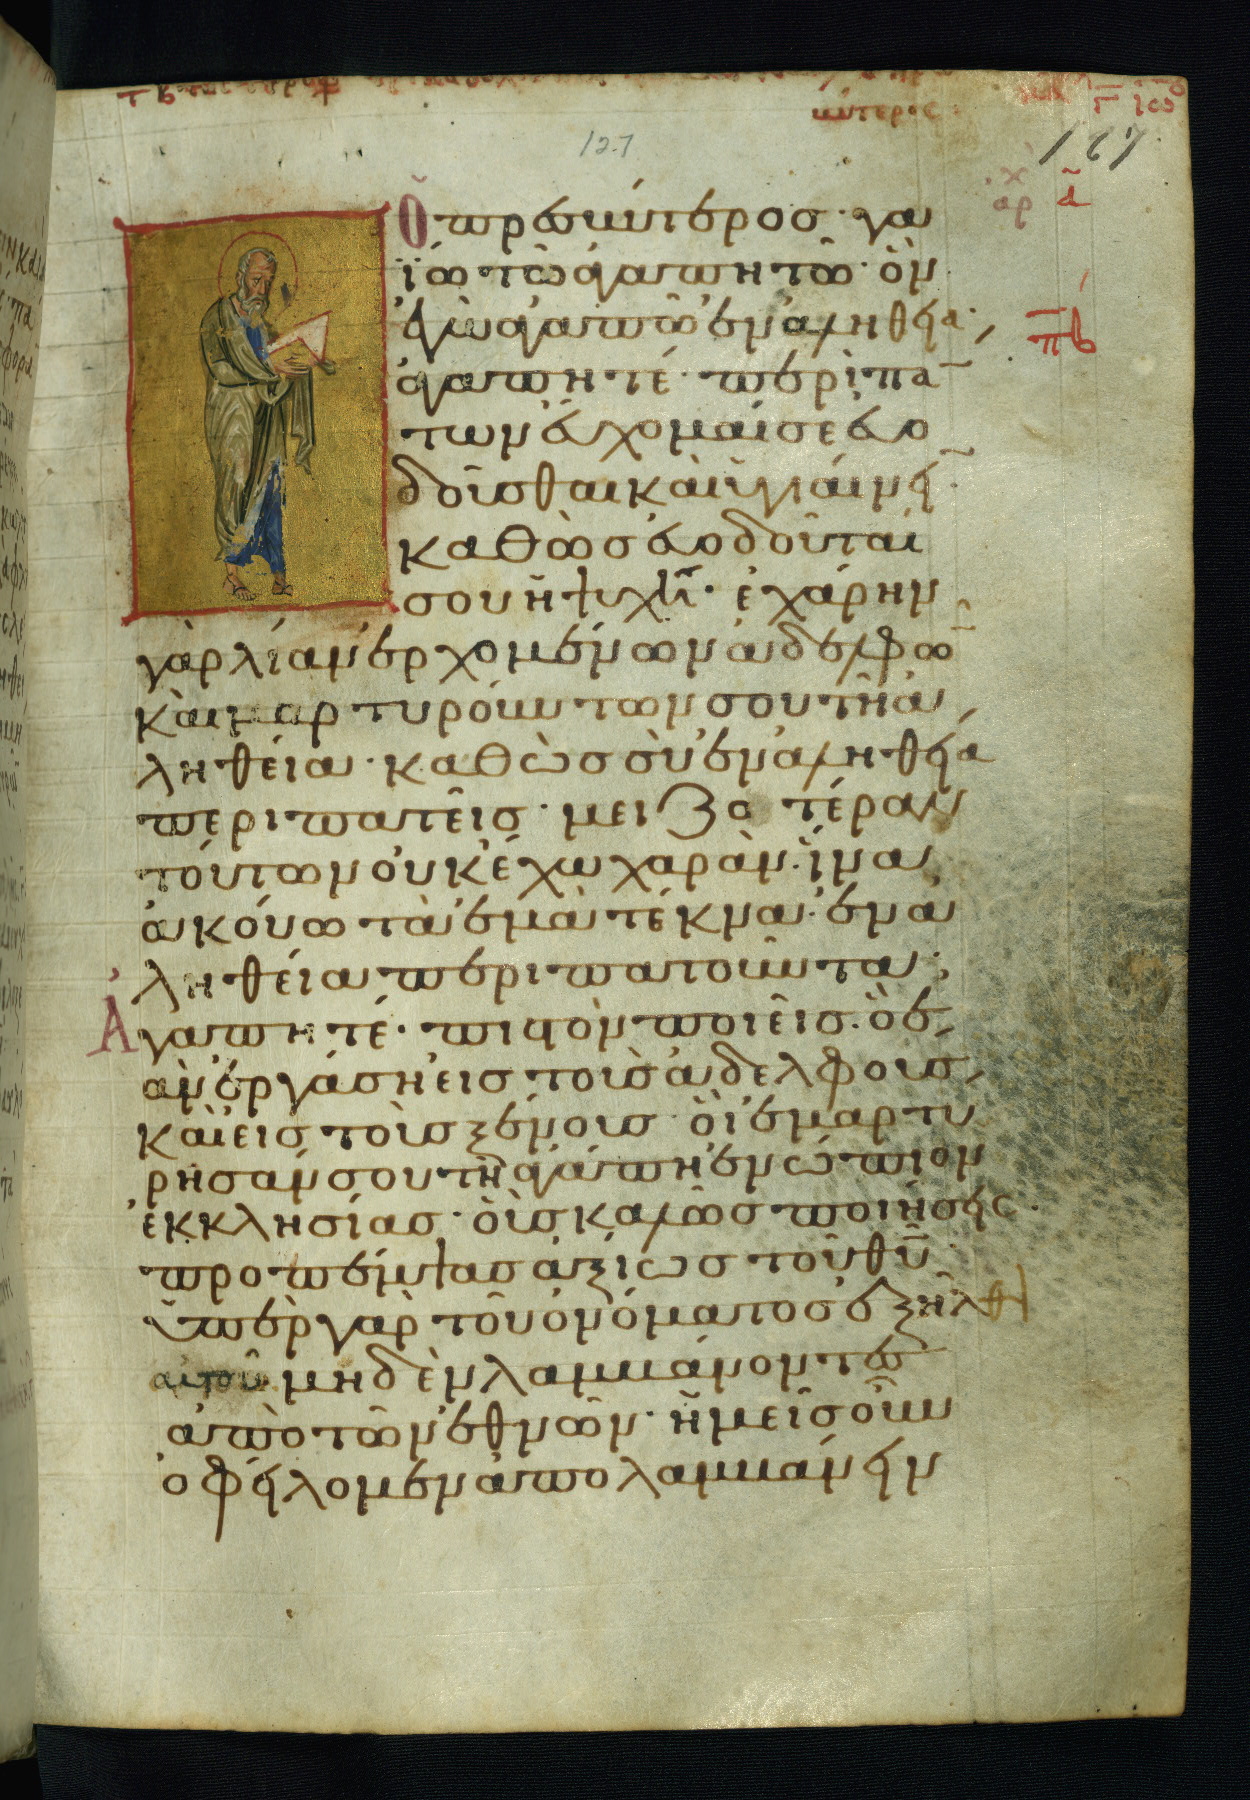 127
127
γ̅ ιω
ἀρχ α
πβ
Ὁ πρεσβύτερος γα
ΐω τῶ ἀγαπητῶ· ὃν
ἐγὼ ἀγαπῶ ἐν ἀληθεία·
ἀγαπητέ· περὶ πα
των εὔχομαί σε εὐο
δοῦσθαι καὶ ὑγιαίνειν·
καθὼς εὐοδοῦταί
σου ἡ ψυχή· ἐχάρην
γὰρ λίαν ἐρχομένων ἀδελφῶ
καὶ μαρτυρούντων σου τῆ ἀ
ληθεία· καθὼς σὺ ἐν ἀληθεία
περιπατεῖς· μειζοτέραν
τούτων οὐκ ἔχω χαρὰν· ἵνα
ἀκούω τὰ ἐμὰ τέκνα· ἐν ἀ
ληθεία περιπατοῦντα·
Ἀγαπητέ· πιστὸν ποιεῖς· ὃ ἐ
ὰν ἐργάση εἰς τοὺς ἀδελφοὺς
καὶ εἰς τοὺς ξένους· οἳ ἐμαρτύ
ρησάν σου τῆ ἀγάπη ἐνώπιον
ἐκκλησίας· οὓς καλῶς ποιήσεις
προπέμψας ἀξίως τοῦ θυ̅·
ὑπὲρ γὰρ τοῦ ὀνόματος ἐξῆλθ
αὐτοῦ μηδὲν λαμβάνοντες
ἀπὸ τῶν ἐθνῶν· ἡμεῖς οὖν
ὀφείλομεν ἀπολαμβάνειν